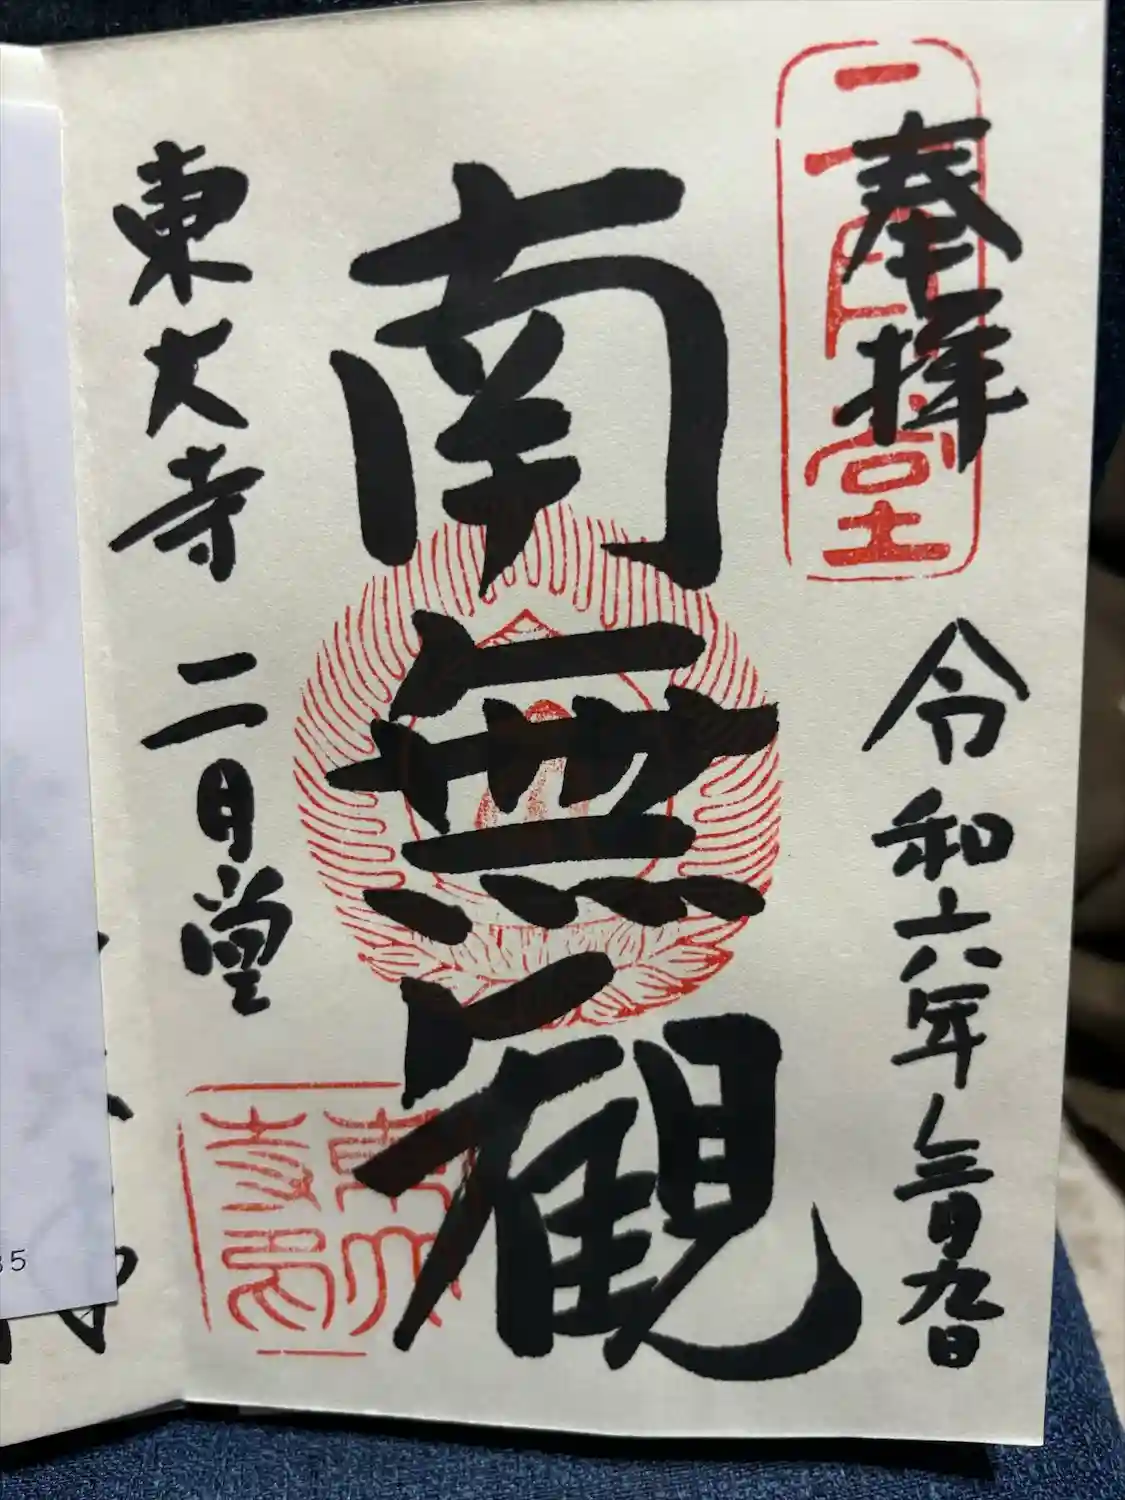 奉拝
二月堂
令和六年三月九日
南無観
東大寺 二月堂
東大寺印
35